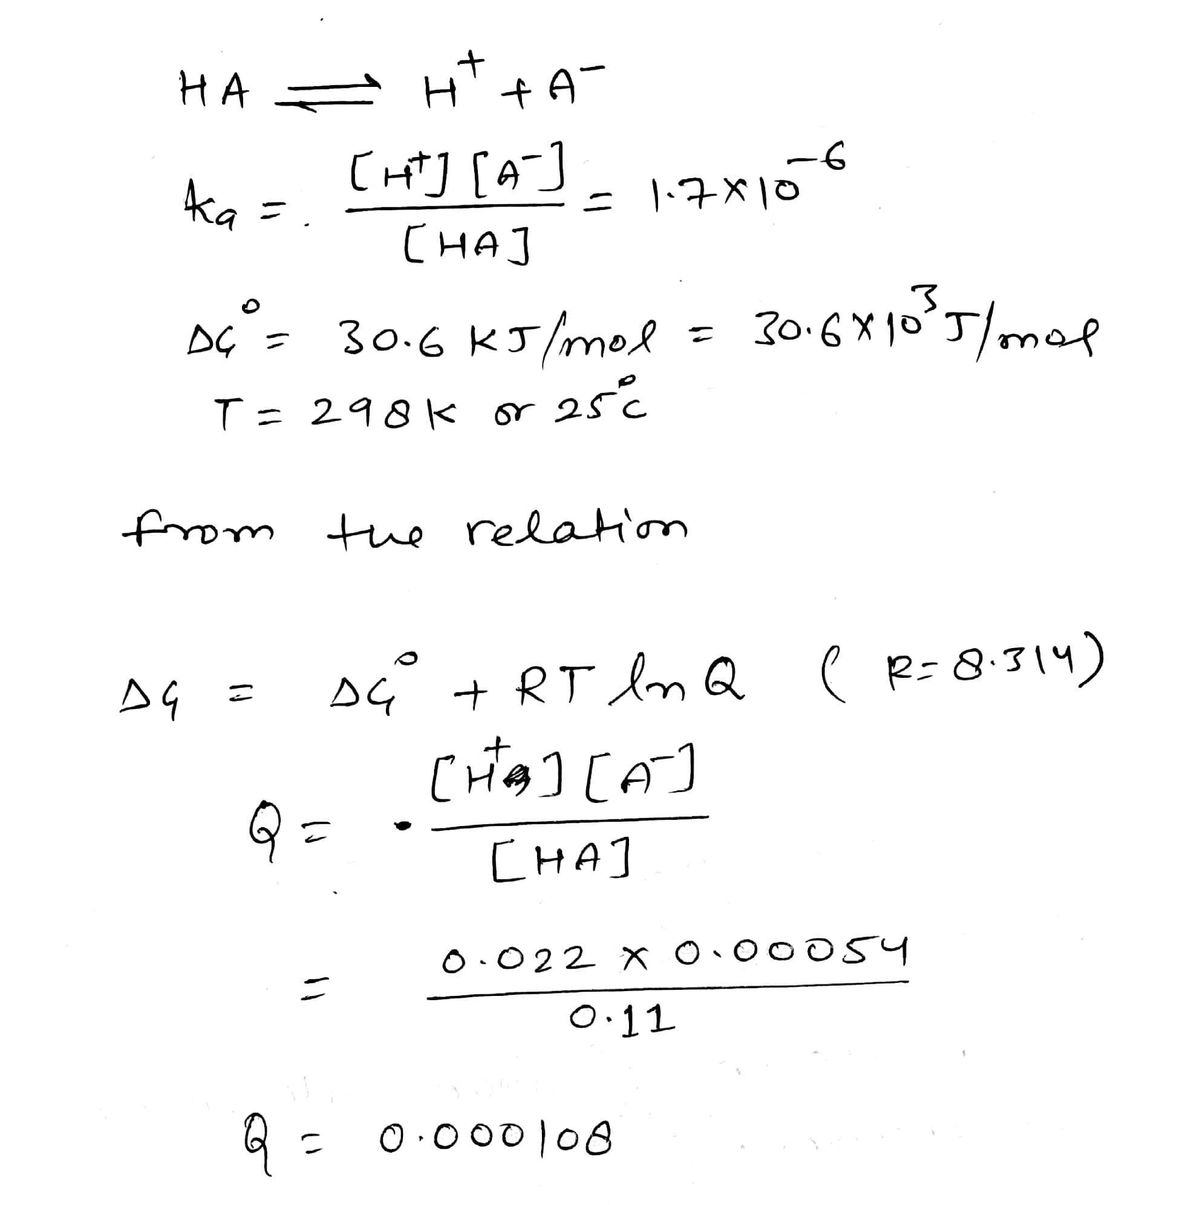 HA ⇌ H⁺ + A⁻
ka = . [H⁺] [A⁻] / [HA] = 1.7 × 10⁻⁶
ΔG° = 30.6 KJ/mol = 30.6 × 10³ J/mol
T = 298 K or 25°C
from the relation
ΔG = ΔG° + RT ln Q ( R = 8.314)
Q = . [H⁺] [A⁻] / [HA]
= 0.022 × 0.00054 / 0.11
Q = 0.000108